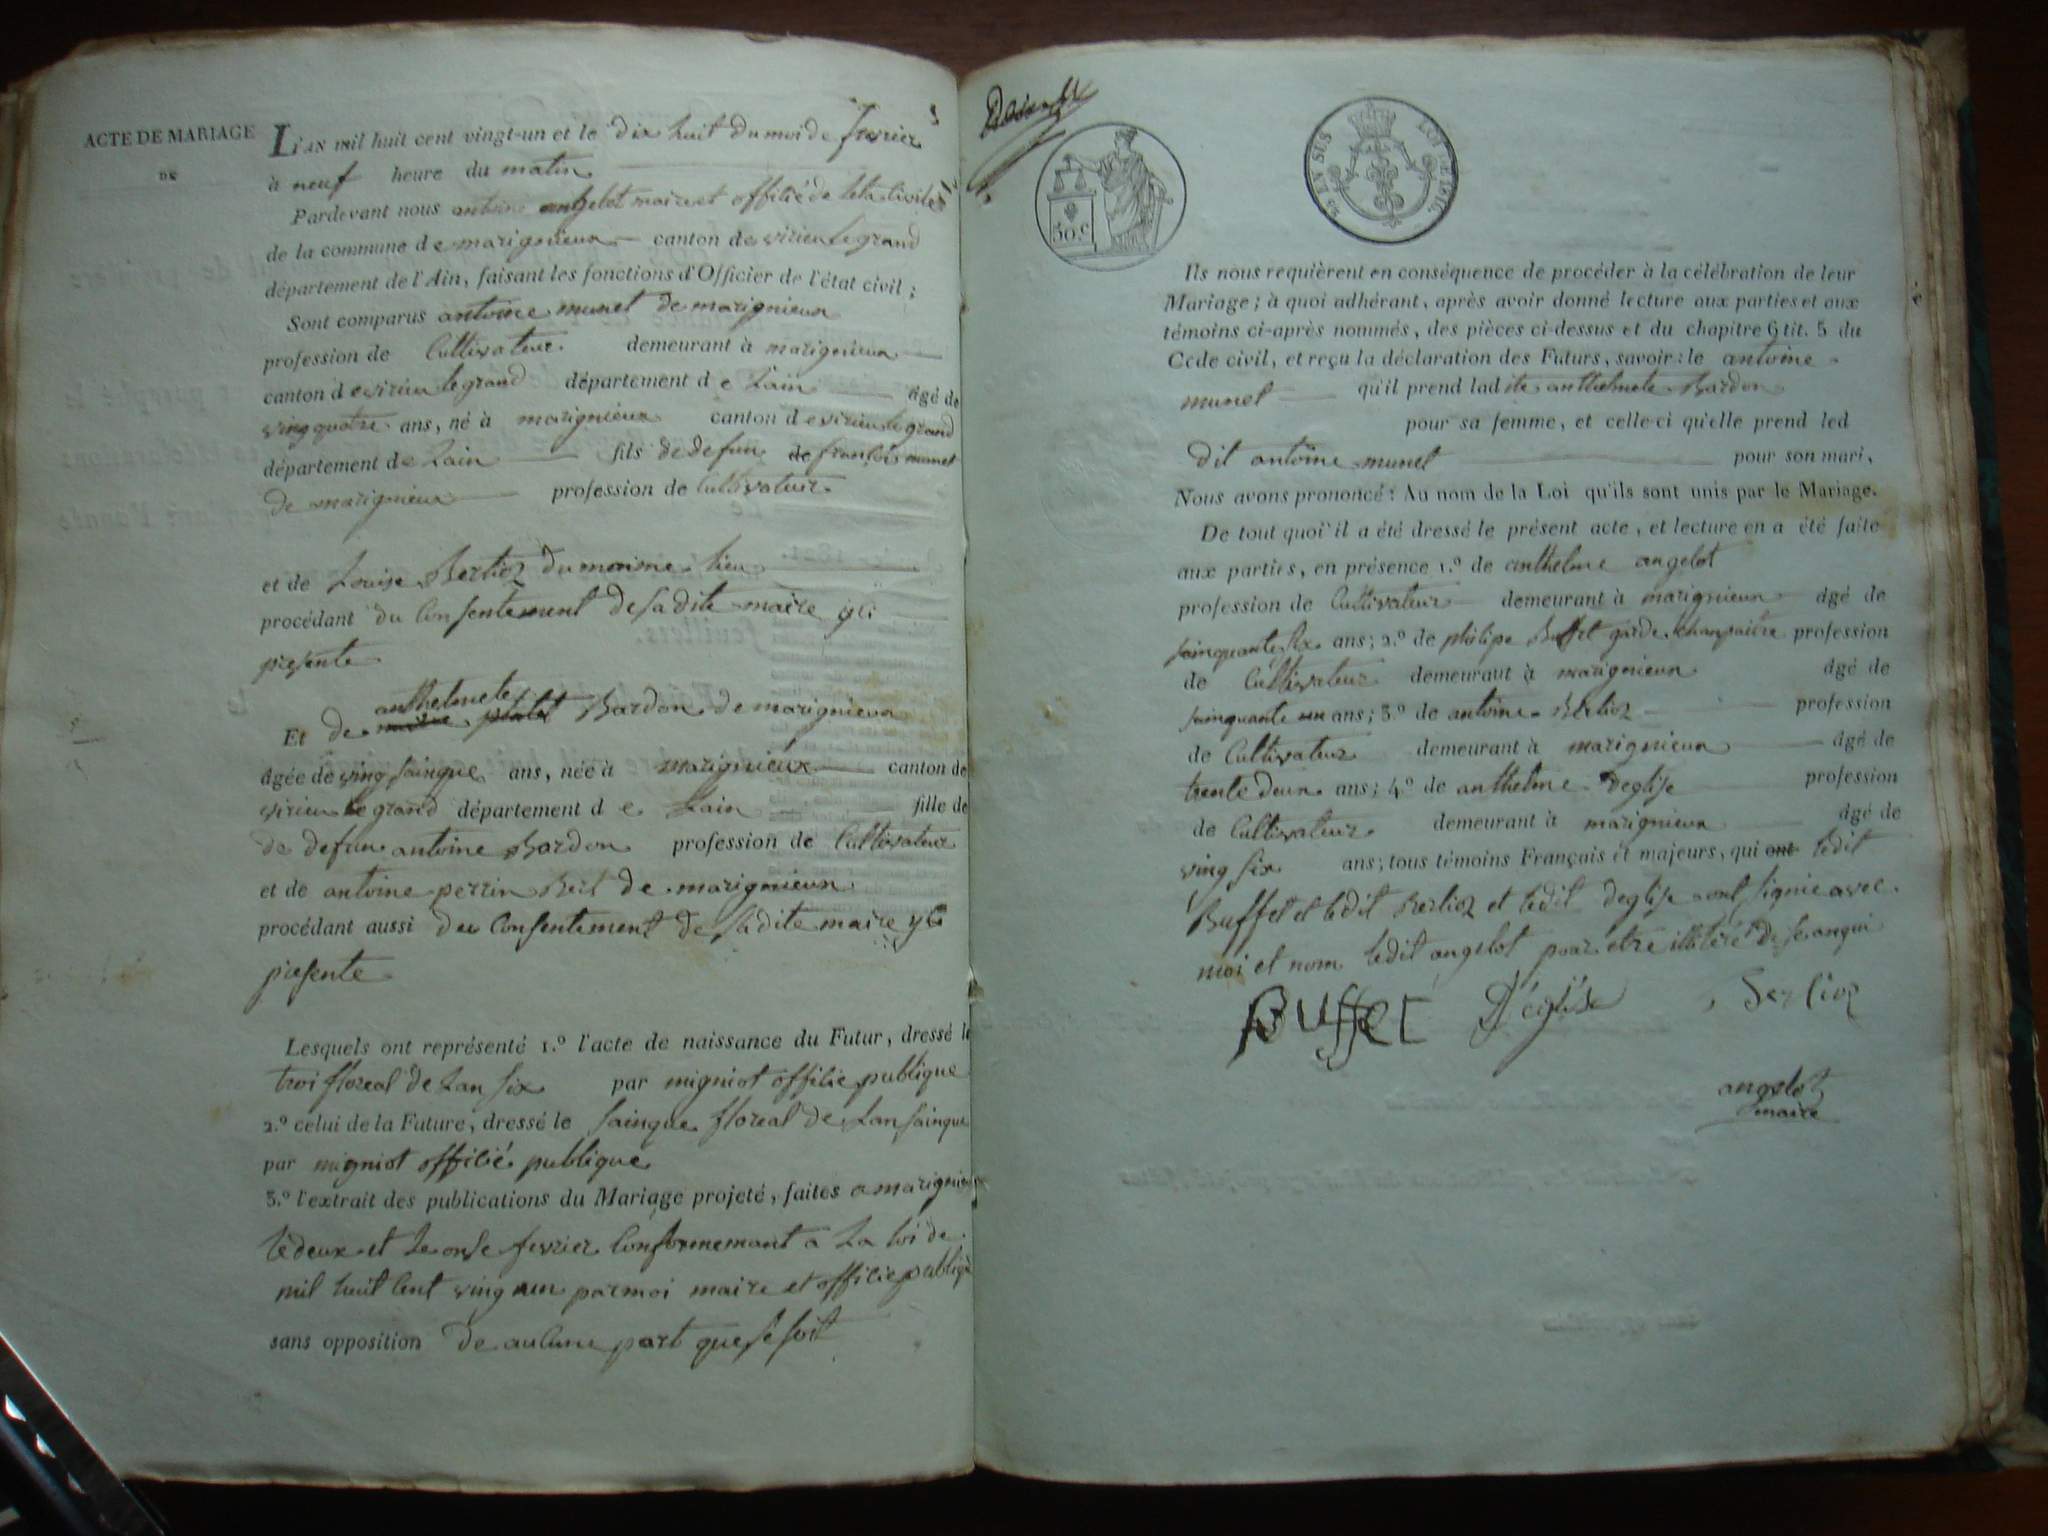 ACTE DE MARIAGE
DE
L'AN mil huit cent vingt-un et le dix huit du moi de fevrier
à neuf heure du matin
Pardevant nous antoine angelot maire et offitié de leta civile
de la commune de marignieux canton de virieu le grand
département de l'Ain, faisant les fonctions d'Officier de l'état civil ;
Sont comparus antoine munet de marignieux
profession de Cultivateur demeurant à marignieux
canton de virieu le grand département de Lain âgé de
ving quatre ans, né à marignieux canton de virieu le grand
département de Lain fils de defun de françoi munet
de marignieux profession de Cultivateur
et de Louise Berlioz du mesme lieu
procédant du Consentement de sa dite maire yci
presente
anthelmete
Et de Bardon de marignieux
âgée de ving sainque ans, née à marignieux canton de
virieu le grand département de Lain fille de
de defun antoine Bardon profession de Cultivateur
et de antoine perrin Bert de marignieux
procédant aussi du Consentement de sa dite maire yci
presente
Lesquels ont représenté 1.º l'acte de naissance du Futur, dressé le
troi floreal de Lan six par migniot offitie publique
2.º celui de la Future, dressé le sainque floreal de Lan sainque
par migniot offitié publique
3.º l'extrait des publications du Mariage projeté, faites a marignieux
le deux et Le onse fevrier Conformemant a La loi de
mil huit Cent ving un par moi maire et offitie publique
sans opposition de aucune part que se soit
50.c
EN SUS
LOI DE 1816
Ils nous requièrent en conséquence de procéder à la célébration de leur
Mariage ; à quoi adhérant, après avoir donné lecture aux parties et aux
témoins ci-après nommés, des pièces ci-dessus et du chapitre 6 tit. 5 du
Code civil, et reçu la déclaration des Futurs, savoir : le antoine
munet qu'il prend ladite anthelmete Bardon
pour sa femme, et celle-ci qu'elle prend led
dit antoine munet pour son mari,
Nous avons prononcé : Au nom de la Loi qu'ils sont unis par le Mariage.
De tout quoi il a été dressé le présent acte, et lecture en a été faite
aux parties, en présence 1.º de anthelme angelot
profession de Cultivateur demeurant à marignieux âgé de
sainquante six ans ; 2.º de philipe Buffet garde champaitre profession
de Cultivateur demeurant à marignieux âgé de
sainquante un ans ; 3.º de antoine Berlioz profession
de Cultivateur demeurant à marignieux âgé de
trente deux ans ; 4.º de anthelme Deglise profession
de Cultivateur demeurant à marignieux âgé de
ving six ans ; tous témoins Français et majeurs, qui ont ledit
Buffet et ledit Berlioz et ledit Deglise ont signie avec
moi et nom ledit angelot pour etre illitéré de se anqui
BUFFET D'église Berlioz
angelot
maire